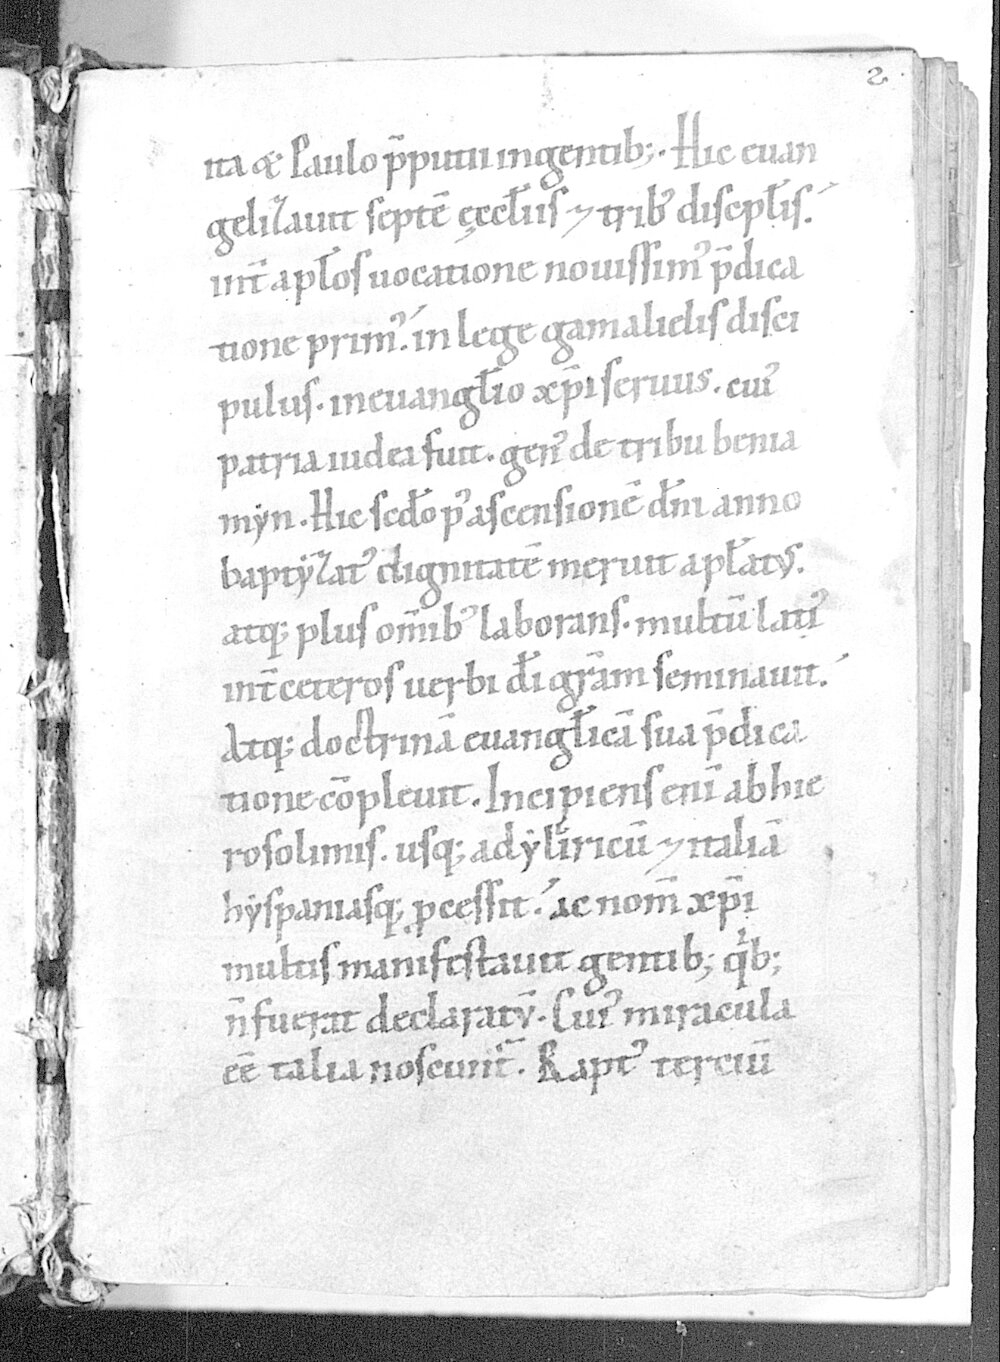 2.
ita & Paulo p̄putii ingentib;. Hic euan
gelizauit septē ęccl̄iis ⁊ trib᾽ discipl̄is.
int̄ apl̄os uocatione nouissim᾽ p̄dica
tione prim᾽. in lege gamalielis disci
pulus. in euangl̄io xp̄i seruus. cui᾽
patria iudea fuit. gen᾽ de tribu benia
myn. Hic scd̄o p᾽ ascensionē dn̄i anno
baptyzat᾽ dignitatē meruit apl̄atus.
atq; plus om̄ib᾽ laborans. multū lati᾽
int̄ ceteros uerbi dī grām seminauit.
Atq; doctrinā euangl̄icā sua p̄dica
tione cōpleuit. Incipiens enī ab hie
rosolimis. usq; ad ylliricū ⁊ italiā
hyspaniasq; ꝓcessit. ac nom̄ xp̄i
multis manifestauit gentib; qⁱb;
n̄ fuerat declaratū. Cui᾽ miracula
eē talia noscunt᾽. Rapt᾽ terciū